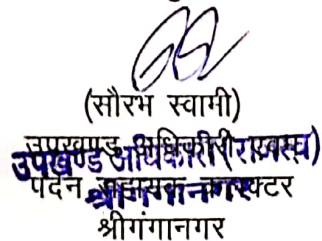 (सौरभ स्वामी)
उपखण्ड अधिकारी एवम
उपखण्ड अधिकारी (राजस्व)
पदेन सहायक कलक्टर
श्रीगंगानगर
श्रीगंगानगर